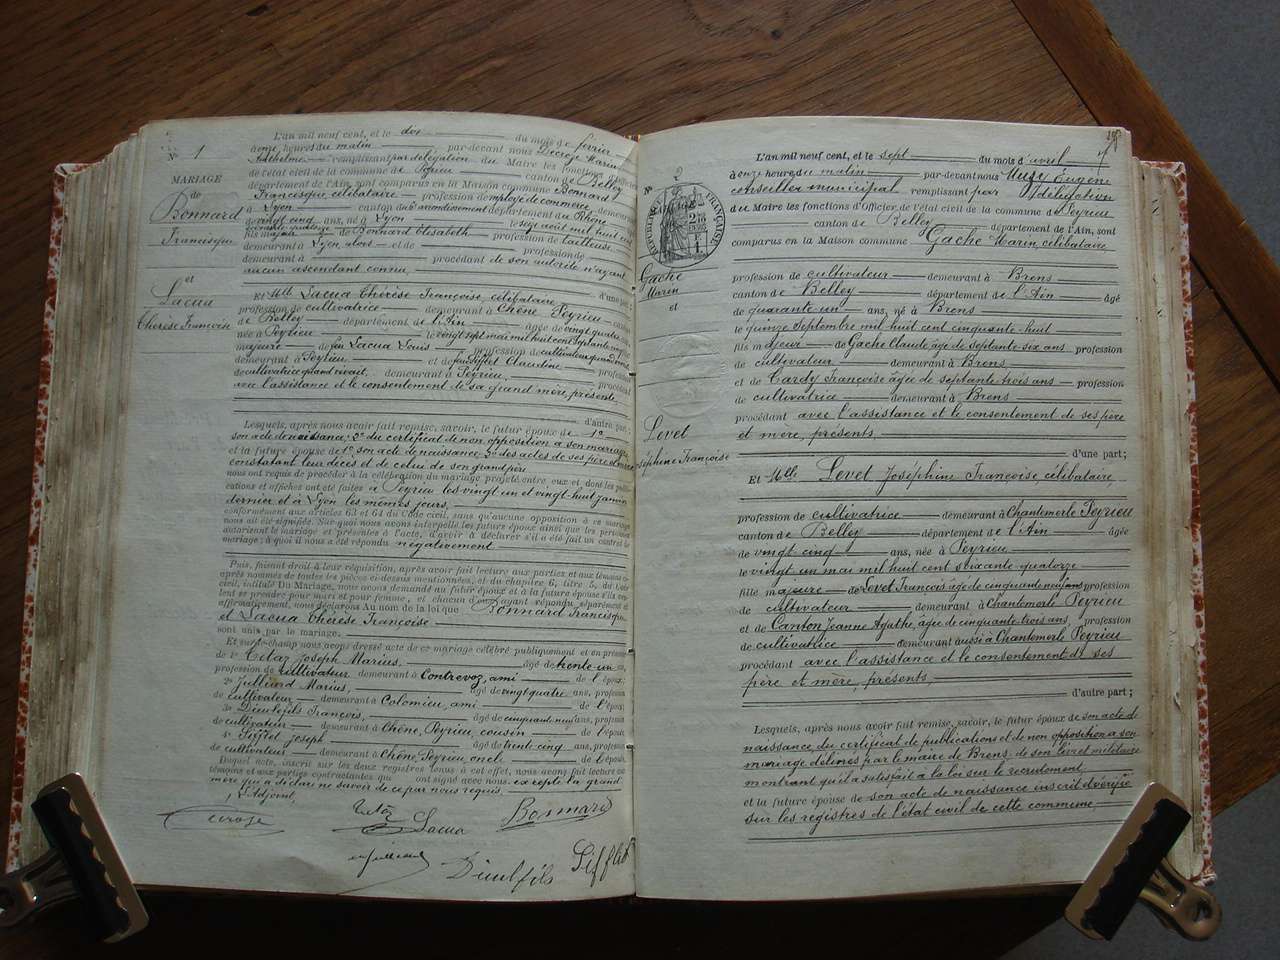 N° 1
MARIAGE
de
Bonnard
Francisque
et
Lacua
Thérèse Françoise
L'an mil neuf cent, et le dix du mois de février
à onze heures du matin par-devant nous Marin
Anthelme remplissant par délégation du Maire les fonctions d'Officier
de l'état civil de la commune de Peyrieu canton de Belley
département de l'Ain, sont comparus en la Maison commune Bonnard
Francisque célibataire profession de employé de commerce demeurant
à Lyon canton du arrondissement département du Rhône
de vingt cinq ans, né à Lyon le seize août mil huit cent
fils majeur de Bonnard Elisabeth profession de tailleuse
demeurant à Lyon, alors et de profession de
demeurant à procédant de son autorité n'ayant
aucun ascendant connu, d'une part
Et Mlle Lacua Thérèse Françoise, célibataire
profession de cultivatrice demeurant à Chêne Peyrieu canton
de Belley département de l'Ain âgée de vingt quatre
née à Peyrieu le vingt sept mai mil huit cent
majeure de feu Lacua Louis profession de cultivateur quand vivait
demeurant à Peyrieu et de feu Claudine profession
de cultivatrice quand vivait demeurant à Peyrieu procédant
avec l'assistance et le consentement de sa grand mère, présente
d'autre part;
Lesquels, après nous avoir fait remise, savoir, le futur époux de 1° 
son acte de naissance; 2° du certificat de non opposition à son mariage
et la future épouse de 1° son acte de naissance, 2° des actes de ses père et mère
constatant leur décès et de celui de son grand père
nous ont requis de procéder à la célébration du mariage projeté entre eux et, dont les publi-
cations et affiches ont été faites à Peyrieu les vingt un et vingt-huit janvier
dernier et à Lyon les mêmes jours,
conformément aux articles 63 et 64 du Code civil, sans qu'aucune opposition à ce mariage
nous ait été signifiée. Sur quoi nous avons interpellé les futurs époux ainsi que les personnes
autorisant le mariage et présentes à l'acte, d'avoir à déclarer s'il a été fait un contrat de
mariage; à quoi il nous a été répondu négativement
Puis, faisant droit à leur réquisition, après avoir fait lecture aux parties et aux témoins ci-
après nommés de toutes les pièces ci-dessus mentionnées, et du chapitre 6, titre 5, du Code
civil, intitulé Du Mariage, nous avons demandé au futur époux et à la future épouse s'ils veu-
lent se prendre pour mari et pour femme, et chacun d'eux ayant répondu séparément et
affirmativement, nous déclarons Au nom de la loi que Bonnard Francisque
et Lacua Thérèse Françoise
sont unis par le mariage.
Et sur-le-champ nous avons dressé acte de ce mariage célébré publiquement et en présence
de 1° Tétaz Joseph Marius, âgé de trente un ans,
profession de cultivateur demeurant à Contrevoz, ami de l'époux;
2° Julliard Marius, âgé de vingt quatre ans, profession
de cultivateur demeurant à Colomieu, ami de l'époux;
3° Dieulefils François, âgé de cinquante neuf ans, profession
de cultivateur demeurant à Chêne, Peyrieu, cousin de l'épouse
4° joseph âgé de trente cinq ans, profession
de cultivateur demeurant à Chêne, Peyrieu, oncle de l'épouse.
Duquel acte, inscrit sur les deux registres tenus à cet effet, nous avons fait lecture aux
témoins et aux parties contractantes qui ont signé avec nous excepté la grand
mère qui a déclaré ne savoir de ce par nous requis.
L'Adjoint,
Lacua
Bonnard
Dieulfils
N° 2
RÉPUBLIQUE FRANÇAISE
Gache
Marin
et
Levet
Joséphine Françoise
L'an mil neuf cent, et le sept du mois d'avril
à onze heures du matin par-devant nous Eugène
conseiller municipal remplissant par délégation
du Maire les fonctions d'Officier de l'état civil de la commune de Peyrieu
canton de Belley département de l'Ain, sont
comparus en la Maison commune Gache Marin, célibataire
profession de cultivateur demeurant à Brens
canton de Belley département de l'Ain âgé
de quarante un ans, né à Brens
le quinze Septembre mil huit cent cinquante-huit
fils majeur de Gache Claude âgé de septante six ans profession
de cultivateur demeurant à Brens
et de Tardy Françoise âgée de septante trois ans profession
de cultivatrice demeurant à Brens
procédant avec l'assistance et le consentement de ses père
et mère, présents
d'une part;
Et Mlle Levet Joséphine Françoise célibataire
profession de cultivatrice demeurant à Chantemerle Peyrieu
canton de Belley département de l'Ain âgée
de vingt cinq ans, née à Peyrieu
le vingt un mai mil huit cent soixante quatorze
fille majeure de Levet François âgé de cinquante neuf ans profession
de cultivateur demeurant à Chantemerle Peyrieu
et de Canton Jeanne Agathe, âgée de cinquante trois ans, profession
de cultivatrice demeurant aussi à Chantemerle Peyrieu
procédant avec l'assistance et le consentement de ses
père et mère, présents,
d'autre part;
Lesquels, après nous avoir fait remise, savoir, le futur époux de son acte de
naissance du certificat de publications et de non opposition à son
mariage délivrés par le maire de Brens, de son livret militaire
montrant qu'il a satisfait à la loi sur le recrutement
et la future épouse de son acte de naissance inscrit et vérifié
sur les registres de l'état civil de cette commune,